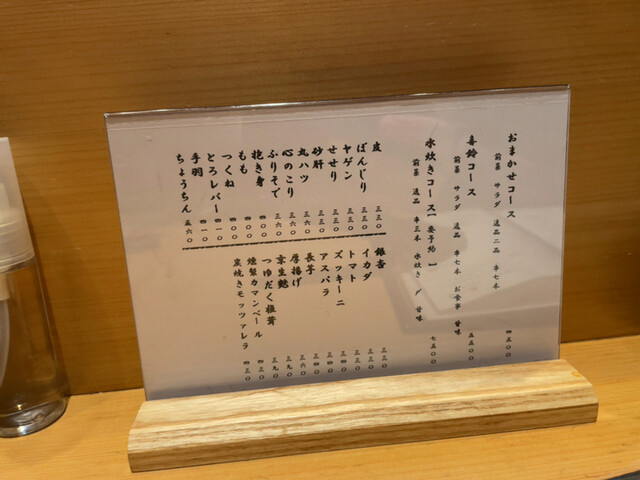 おまかせコース
前菜 サラダ 逸品二品 串七本 四五〇〇
喜鈴コース
前菜 サラダ 逸品 串七本 お食事 甘味 五五〇〇
水炊きコース【要予約】
前菜 逸品 串三本 水炊き 〆 甘味 七五〇〇
皮 三三〇
ぼんじり 三三〇
ヤゲン 三三〇
せせり 三三〇
砂肝 三三〇
丸ハツ
心のこり
ふりそで 三六〇
抱き身
もも
つくね
とろレバー 四一〇
手羽 四一〇
ちょうちん 五六〇
銀杏 三三〇
イカダ 三三〇
トマト
ズッキーニ
アスパラ 三四〇
長芋
厚揚げ 三六〇
京生麩 三九〇
つゆだく椎茸 三九〇
燻製カマンベール 四三〇
炭焼きモッツァレラ 四三〇